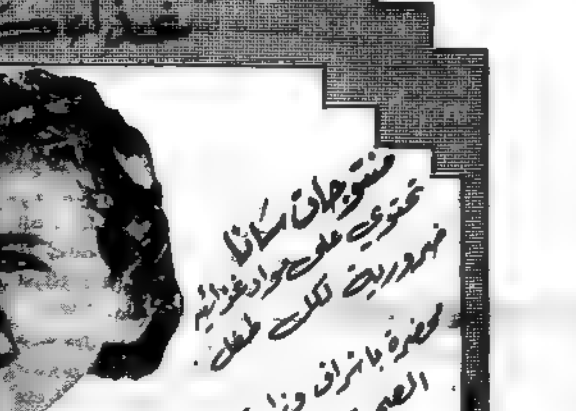 منتوجات سانا
تحتوي على مواد غذائية
ضرورية لكل طفل.
محضرة باشراف وزا
الص